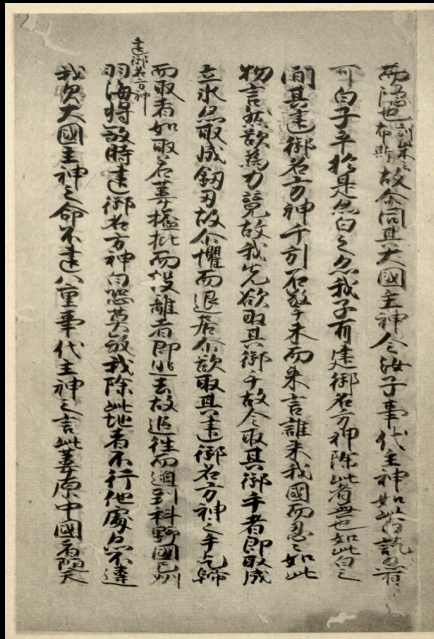 而隱也訓柴云布斯故尒問其大國主神今汝子事代主神如此白訖亦有
可白子乎於是亦白之亦我子有建御名方神除此者無也如此白之
間其建御名方神千引石擎手末而来言誰来我國而忍々如此
物言然欲爲力競故我先欲取其御手故令取其御手者即取成
立氷亦取成釼刃故尒懼而退居尒欲取其建御名方神之手乞歸
而取者如取若葦搤批而投離者即逃去故追往而迫到科野國之州
建御名方神
羽海将殺時建御名方神白恐莫殺我除此地者不行他處亦不違
我父大國主神之命不違八重事代主神之言此葦原中國者随天